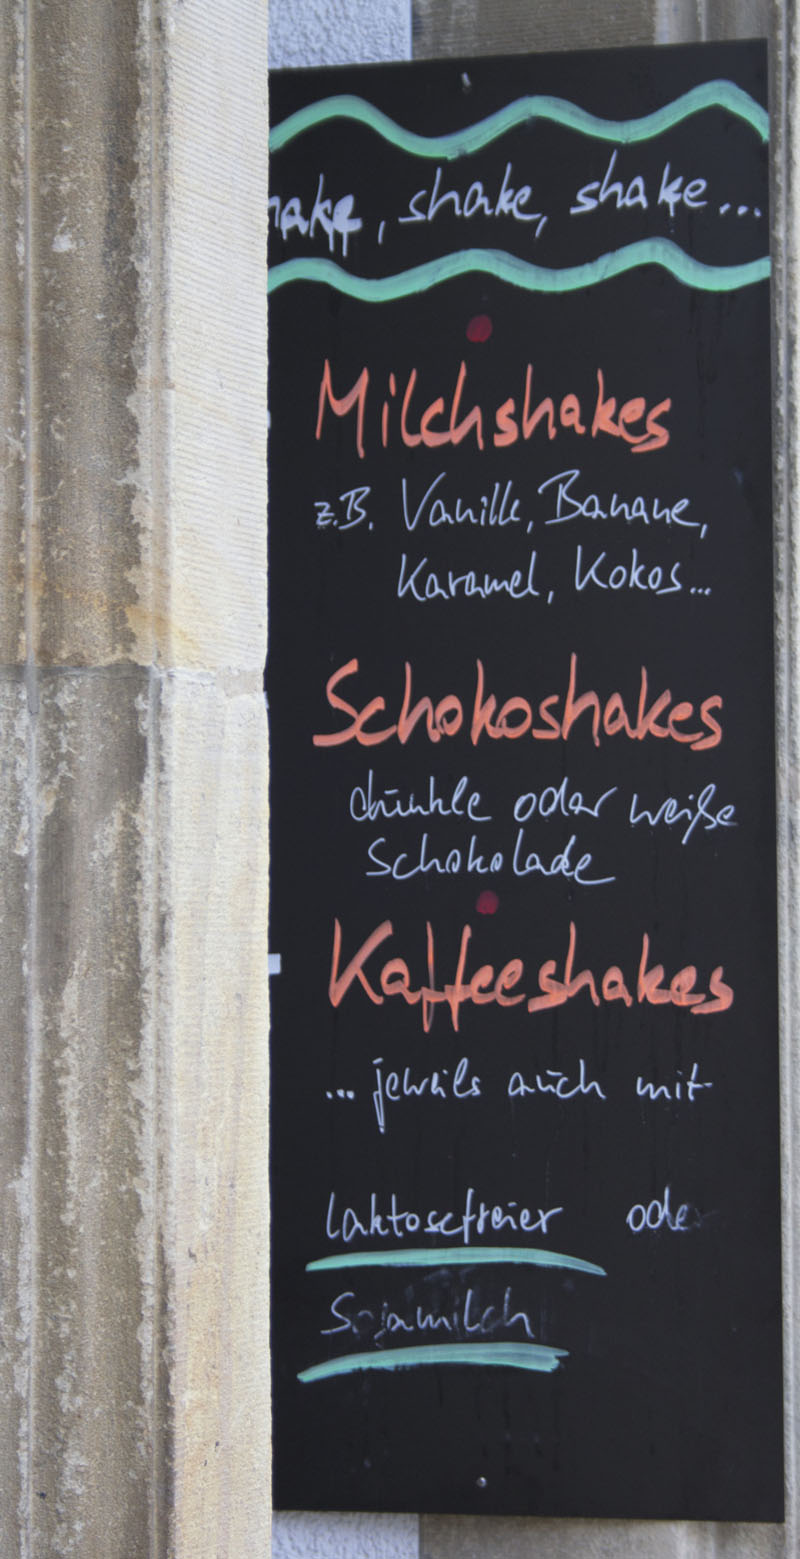 hake, shake, shake...
Milchshakes
z.B. Vanille, Banane,
Karamel, Kokos...
Schokoshakes
dunkle oder weiße
Schokolade
Kaffeeshakes
... jeweils auch mit
laktosefreier oder
Sojamilch